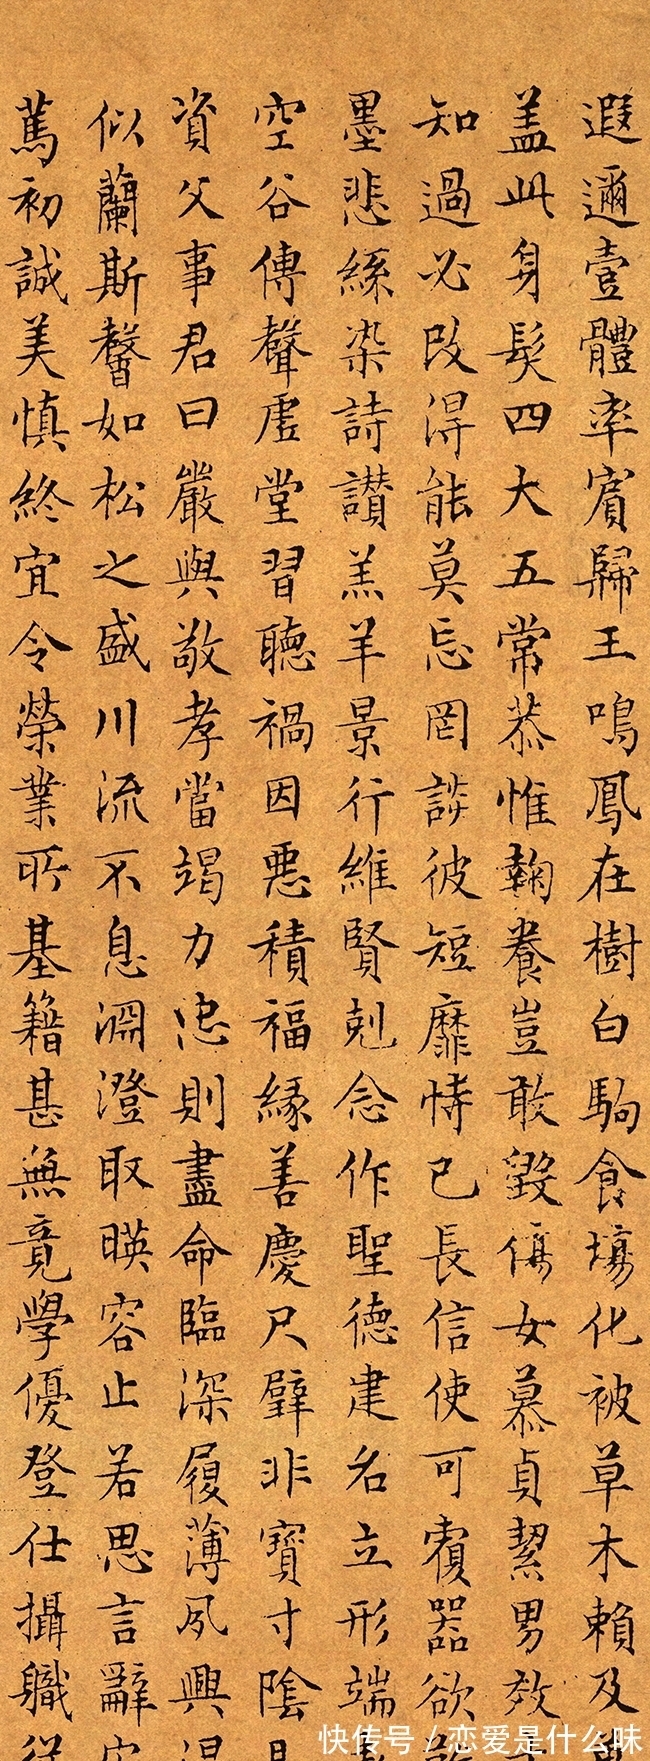 遐邇壹體率賓歸王鳴鳳在樹白駒食場化被草木賴及
盖此身髮四大五常恭惟鞠養豈敢毀傷女慕貞絜男效
知過必改得能莫忘罔談彼短靡恃己長信使可覆器欲
墨悲絲染詩讃羔羊景行維賢剋念作聖德建名立形端
空谷傳聲虛堂習聽禍因惡積福緣善慶尺璧非寶寸陰
資父事君曰嚴與敬孝當竭力忠則盡命臨深履薄夙興
似蘭斯馨如松之盛川流不息淵澄取暎容止若思言辭
篤初誠美慎終宜令榮業所基籍甚無竟學優登仕攝職
快传号/恋爱是什么味